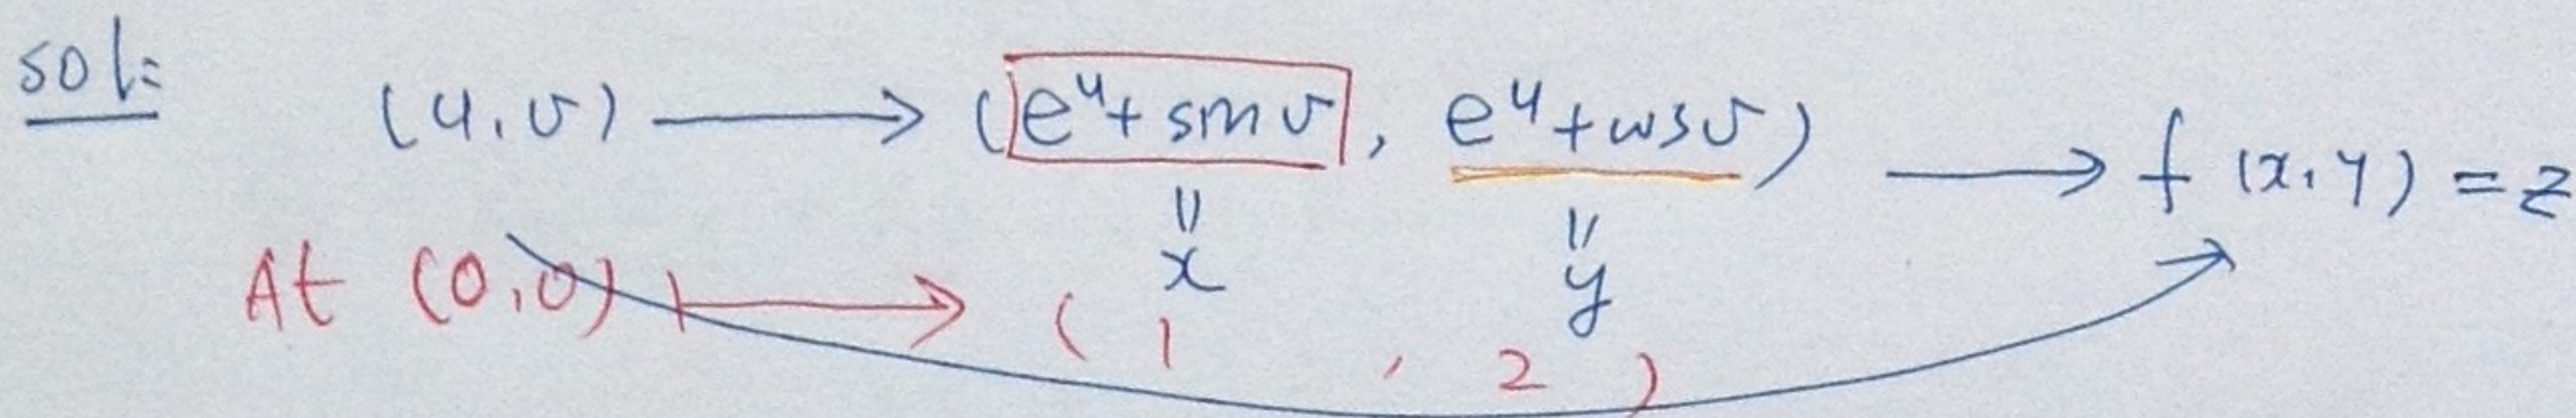 sol:
(u,v) ⟶ (e^u + sin v, e^u + cos v) ⟶ f(x,y) = z
= x = y
At (0,0) ↦ (1, 2)